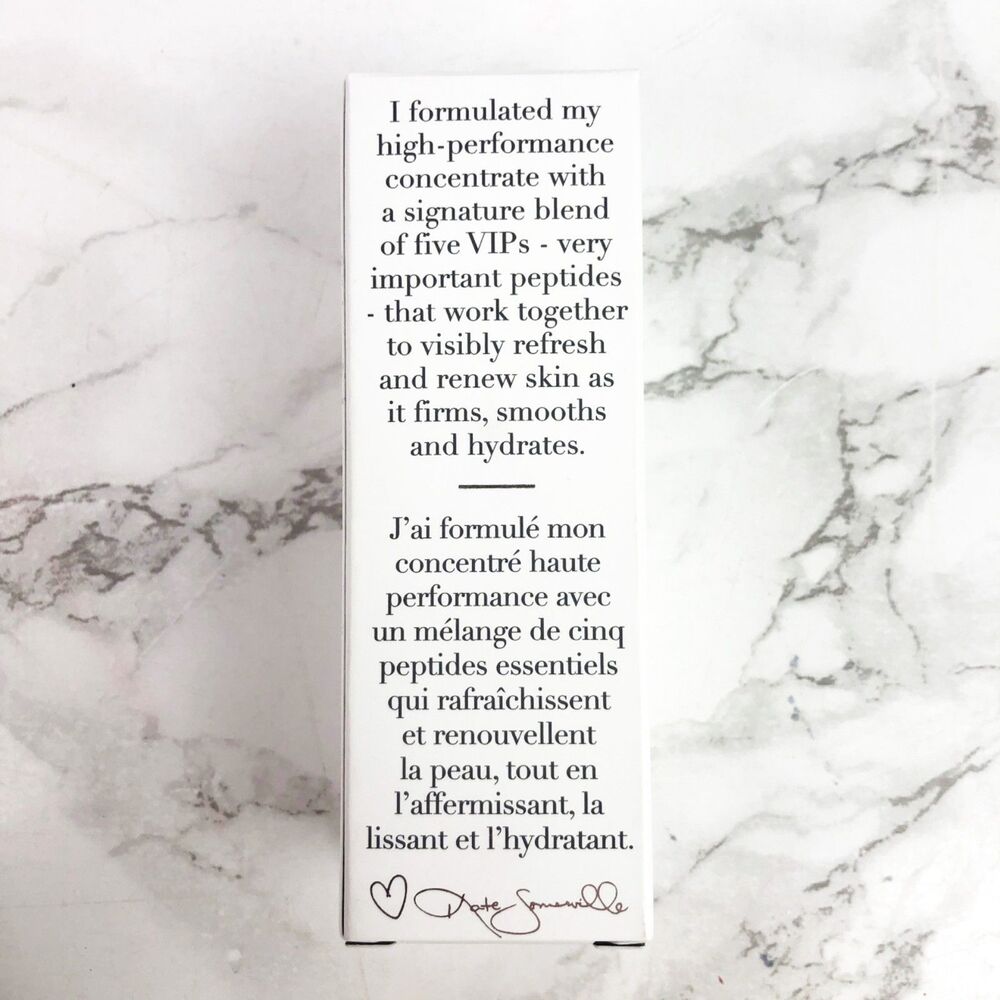 I formulated my
high-performance
concentrate with
a signature blend
of five VIPs - very
important peptides
- that work together
to visibly refresh
and renew skin as
it firms, smooths
and hydrates.
J'ai formulé mon
concentré haute
performance avec
un mélange de cinq
peptides essentiels
qui rafraîchissent
et renouvellent
la peau, tout en
l'affermissant, la
lissant et l'hydratant.
Kate Somerville